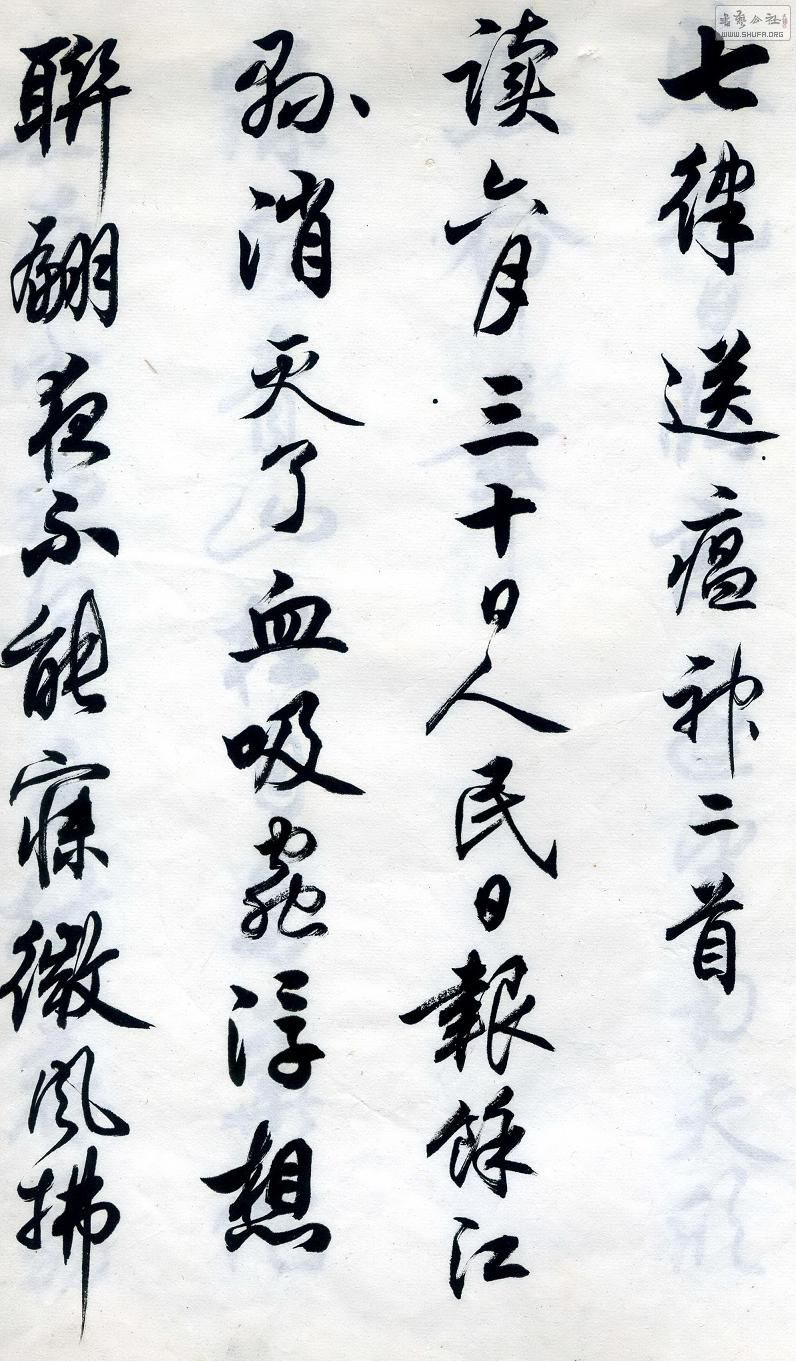 七律送瘟神二首
读六月三十日人民日報餘江
縣消灭了血吸蟲浮想
聯翩夜不能寐微風拂
書藝公社
WWW.SHUFA.ORG